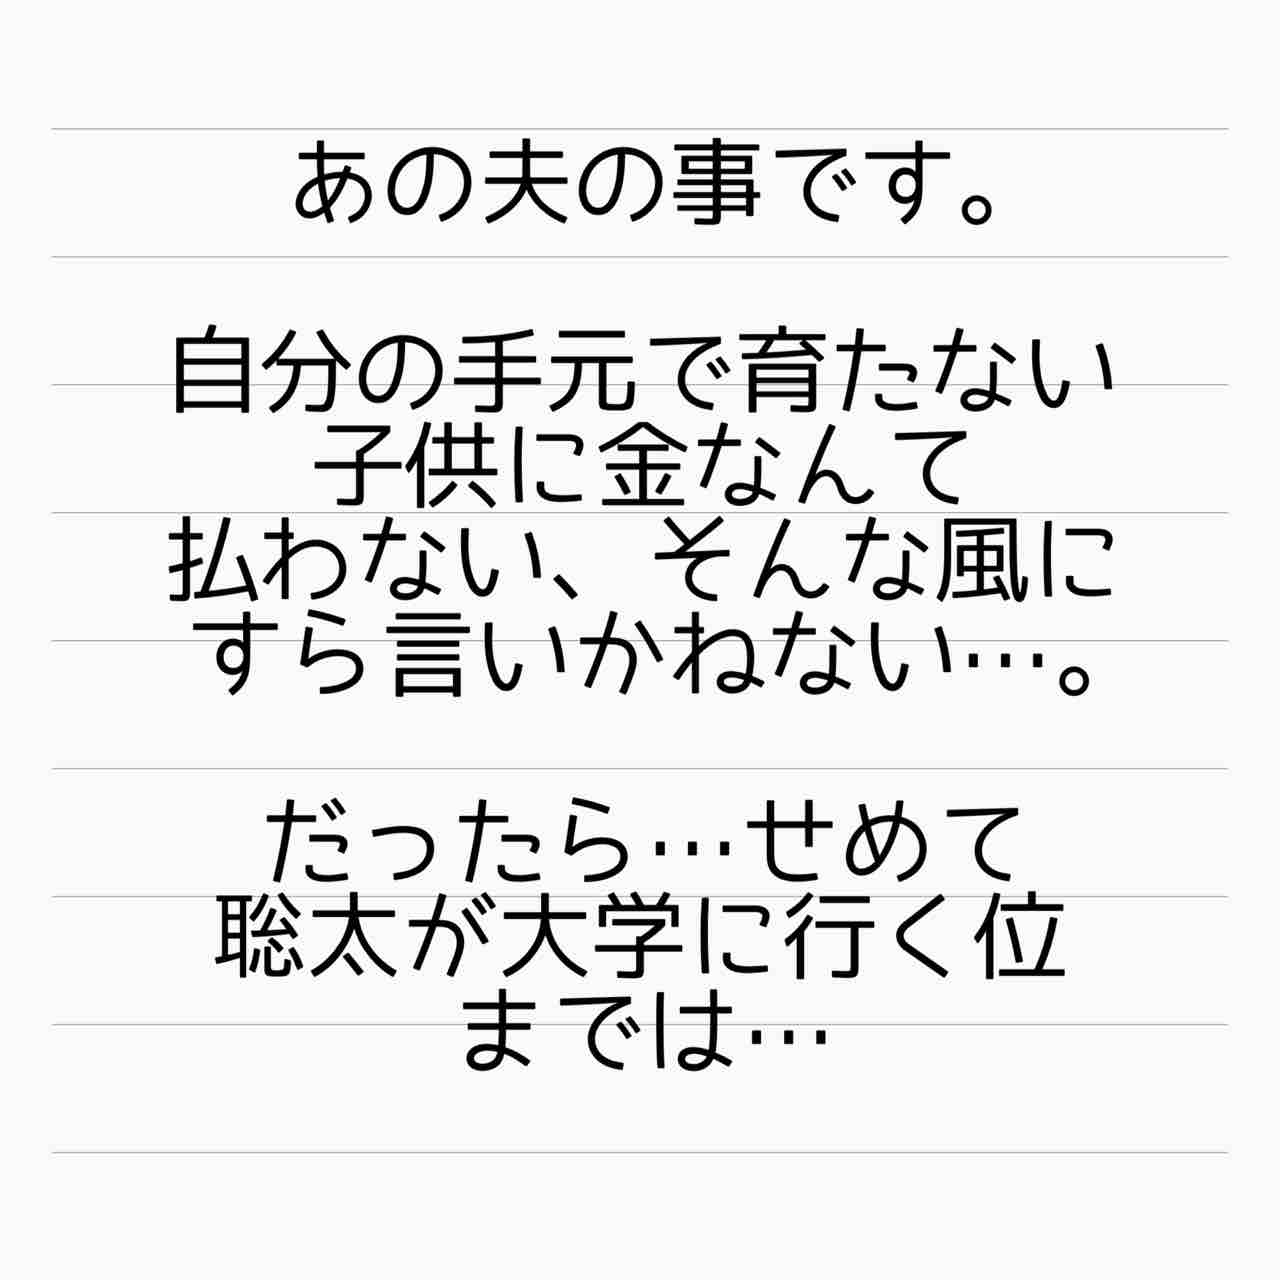 あの夫の事です。
自分の手元で育たない
子供に金なんて
払わない、そんな風に
すら言いかねない…。
だったら…せめて
聡太が大学に行く位
までは…